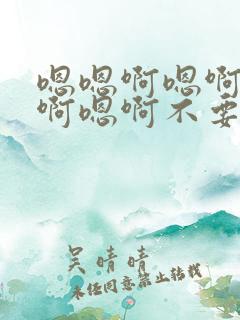 嗯嗯啊嗯啊
啊嗯啊不要
吴晴晴
未经同意禁止转载